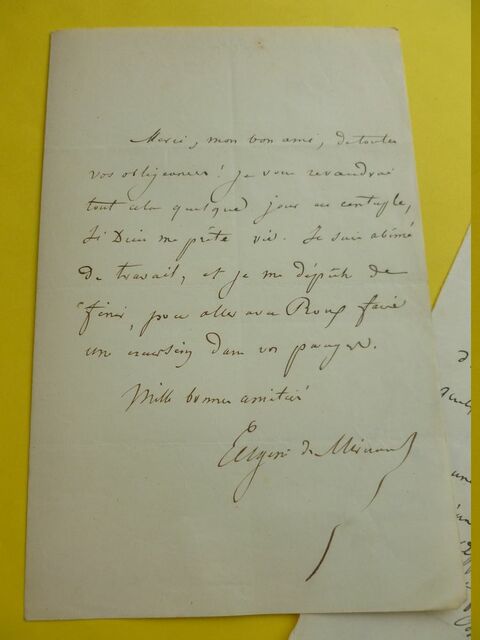 Merci, mon bon ami, de toutes
vos obligeances! je vous revaudrai
tout cela quelque jour au centuple,
si Dieu me prête vie. Je suis abîmé
de travail, et je me dépêche de
finir, pour aller avec Roux faire
une excursion dans vos parages.
Mille bonnes amitiés
Eugène de Mirecourt